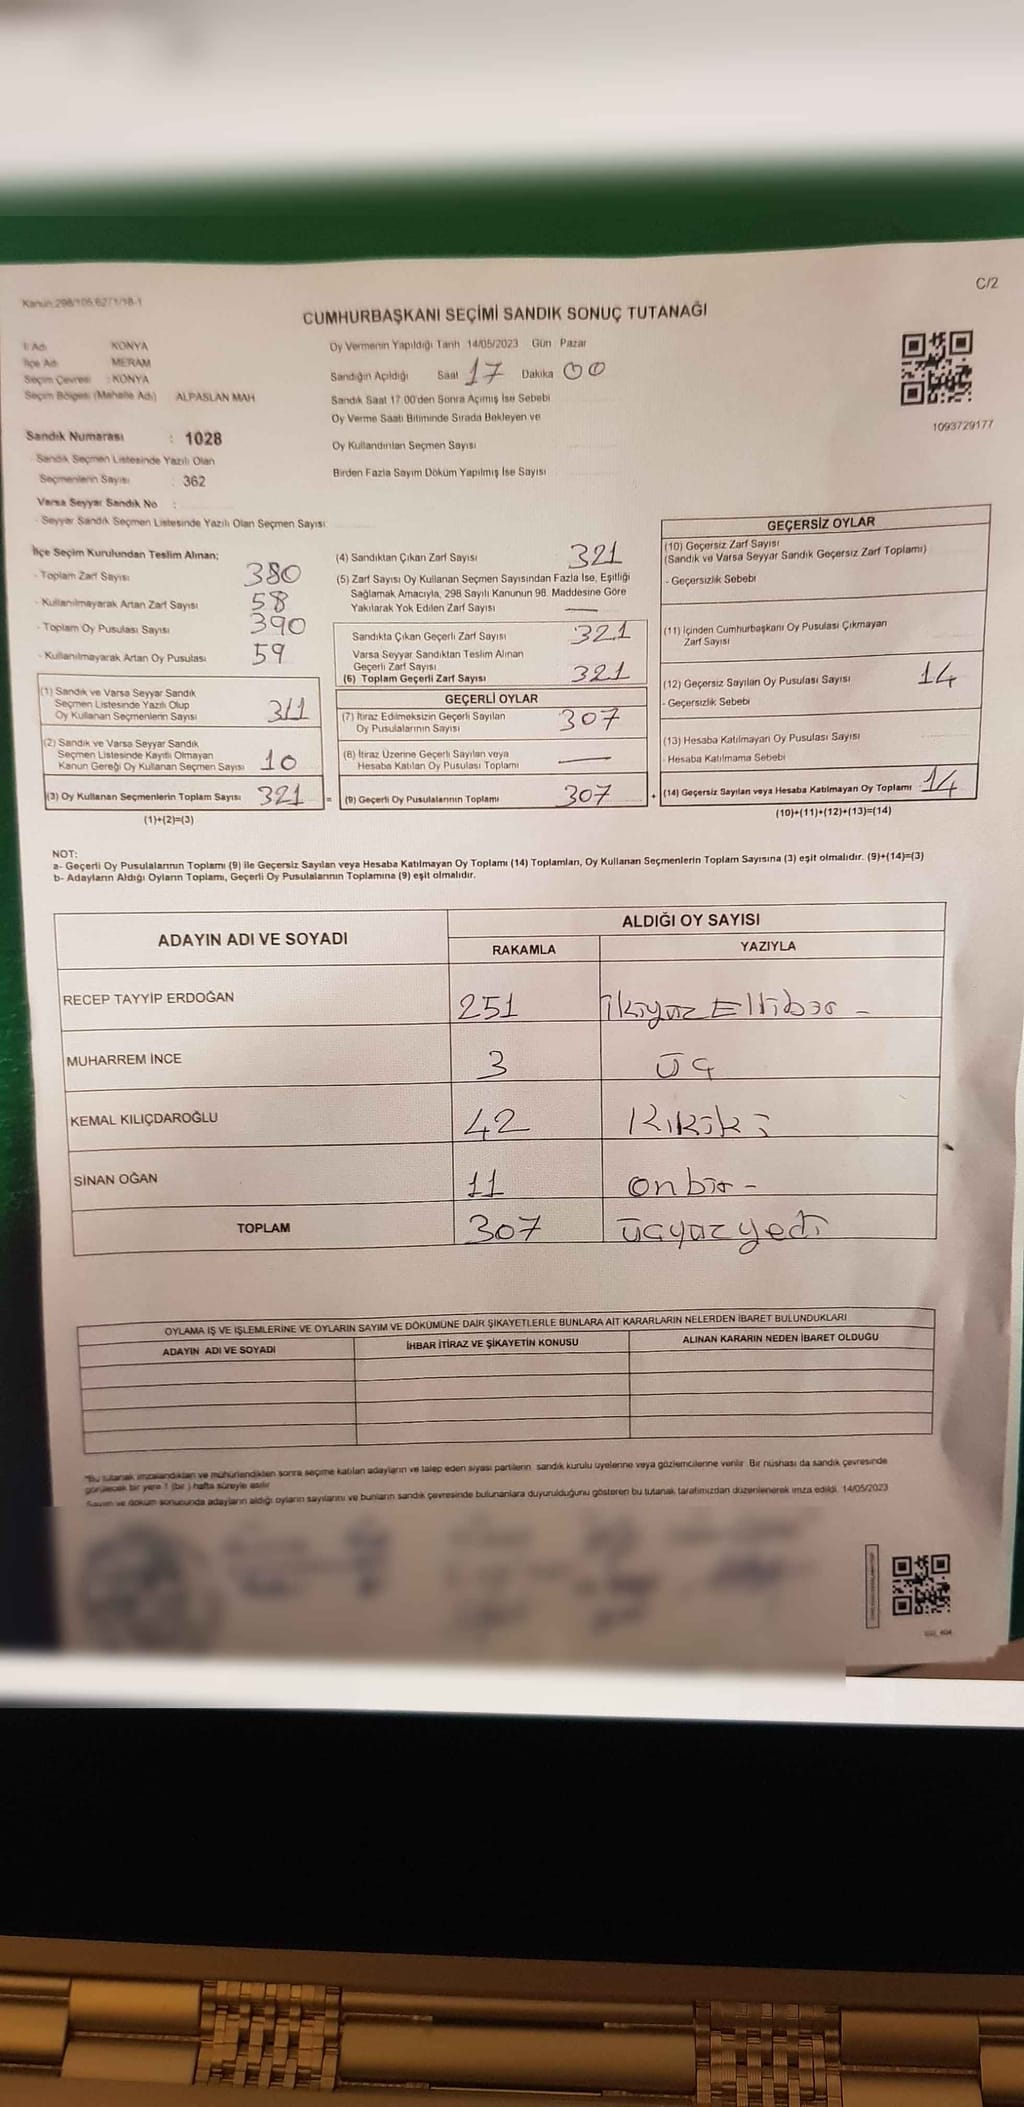 C/2
Kanun:298/105,6271/18-1
CUMHURBAŞKANI SEÇİMİ SANDIK SONUÇ TUTANAĞI
İl Adı KONYA
İlçe Adı MERAM
Seçim Çevresi : KONYA
Seçim Bölgesi (Mahalle Adı) ALPASLAN MAH
Sandık Numarası : 1028
Sandık Seçmen Listesinde Yazılı Olan
Seçmenlerin Sayısı : 362
Varsa Seyyar Sandık No :
- Seyyar Sandık Seçmen Listesinde Yazılı Olan Seçmen Sayısı
Oy Vermenin Yapıldığı Tarih 14/05/2023 Gün : Pazar
Sandığın Açıldığı Saat 17 Dakika 00
Sandık Saat 17:00'den Sonra Açımış İse Sebebi
Oy Verme Saati Bitiminde Sırada Bekleyen ve
Oy Kullandırılan Seçmen Sayısı
Birden Fazla Sayım Döküm Yapılmış İse Sayısı
1093729177
İlçe Seçim Kurulundan Teslim Alınan;
- Toplam Zarf Sayısı 380
- Kullanılmayarak Artan Zarf Sayısı 58
- Toplam Oy Pusulası Sayısı 390
- Kullanılmayarak Artan Oy Pusulası 59
(1) Sandık ve Varsa Seyyar Sandık
Seçmen Listesinde Yazılı Olup
Oy Kullanan Seçmenlerin Sayısı 311
(2) Sandık ve Varsa Seyyar Sandık
Seçmen Listesinde Kayıtlı Olmayan
Kanun Gereği Oy Kullanan Seçmen Sayısı 10
(3) Oy Kullanan Seçmenlerin Toplam Sayısı 321 =
(1)+(2)=(3)
(4) Sandıktan Çıkan Zarf Sayısı 321
(5) Zarf Sayısı Oy Kullanan Seçmen Sayısından Fazla İse, Eşitliği
Sağlamak Amacıyla, 298 Sayılı Kanunun 98. Maddesine Göre
Yakılarak Yok Edilen Zarf Sayısı —
Sandıkta Çıkan Geçerli Zarf Sayısı 321
Varsa Seyyar Sandıktan Teslim Alınan
Geçerli Zarf Sayısı
(6) Toplam Geçerli Zarf Sayısı 321
GEÇERLİ OYLAR
(7) İtiraz Edilmeksizin Geçerli Sayılan
Oy Pusulalarının Sayısı 307
(8) İtiraz Üzerine Geçerli Sayılan veya
Hesaba Katılan Oy Pusulası Toplamı —
(9) Geçerli Oy Pusulalarının Toplamı 307 +
GEÇERSİZ OYLAR
(10) Geçersiz Zarf Sayısı
(Sandık ve Varsa Seyyar Sandık Geçersiz Zarf Toplamı)
- Geçersizlik Sebebi
(11) İçinden Cumhurbaşkanı Oy Pusulası Çıkmayan
Zarf Sayısı
(12) Geçersiz Sayılan Oy Pusulası Sayısı 14
- Geçersizlik Sebebi
(13) Hesaba Katılmayan Oy Pusulası Sayısı
- Hesaba Katılmama Sebebi
(14) Geçersiz Sayılan veya Hesaba Katılmayan Oy Toplamı 14
(10)+(11)+(12)+(13)=(14)
NOT:
a- Geçerli Oy Pusulalarının Toplamı (9) ile Geçersiz Sayılan veya Hesaba Katılmayan Oy Toplamı (14) Toplamları, Oy Kullanan Seçmenlerin Toplam Sayısına (3) eşit olmalıdır. (9)+(14)=(3)
b- Adayların Aldığı Oyların Toplamı, Geçerli Oy Pusulalarının Toplamına (9) eşit olmalıdır.
ADAYIN ADI VE SOYADI ALDIĞI OY SAYISI
RAKAMLA YAZIYLA
RECEP TAYYİP ERDOĞAN 251 ikiyüz Ellibir -
MUHARREM İNCE 3 üç
KEMAL KILIÇDAROĞLU 42 Kıkiki
SİNAN OĞAN 11 onbir -
TOPLAM 307 üçyüz yedi
OYLAMA İŞ VE İŞLEMLERİNE VE OYLARIN SAYIM VE DÖKÜMÜNE DAİR ŞİKAYETLERLE BUNLARA AİT KARARLARIN NELERDEN İBARET BULUNDUKLARI
ADAYIN ADI VE SOYADI İHBAR İTİRAZ VE ŞİKAYETİN KONUSU ALINAN KARARIN NEDEN İBARET OLDUĞU
*Bu tutanak imzalandıktan ve mühürlendikten sonra seçime katılan adayların ve talep eden siyasi partilerin sandık kurulu üyelerine veya gözlemcilerine verilir. Bir nüshası da sandık çevresinde
görülecek bir yere 1 (bir) hafta süreyle asılır
Sayım ve döküm sonucunda adayların aldığı oyların sayılarını ve bunların sandık çevresinde bulunanlara duyurulduğunu gösteren bu tutanak tarafımızdan düzenlenerek imza edildi. 14/05/2023